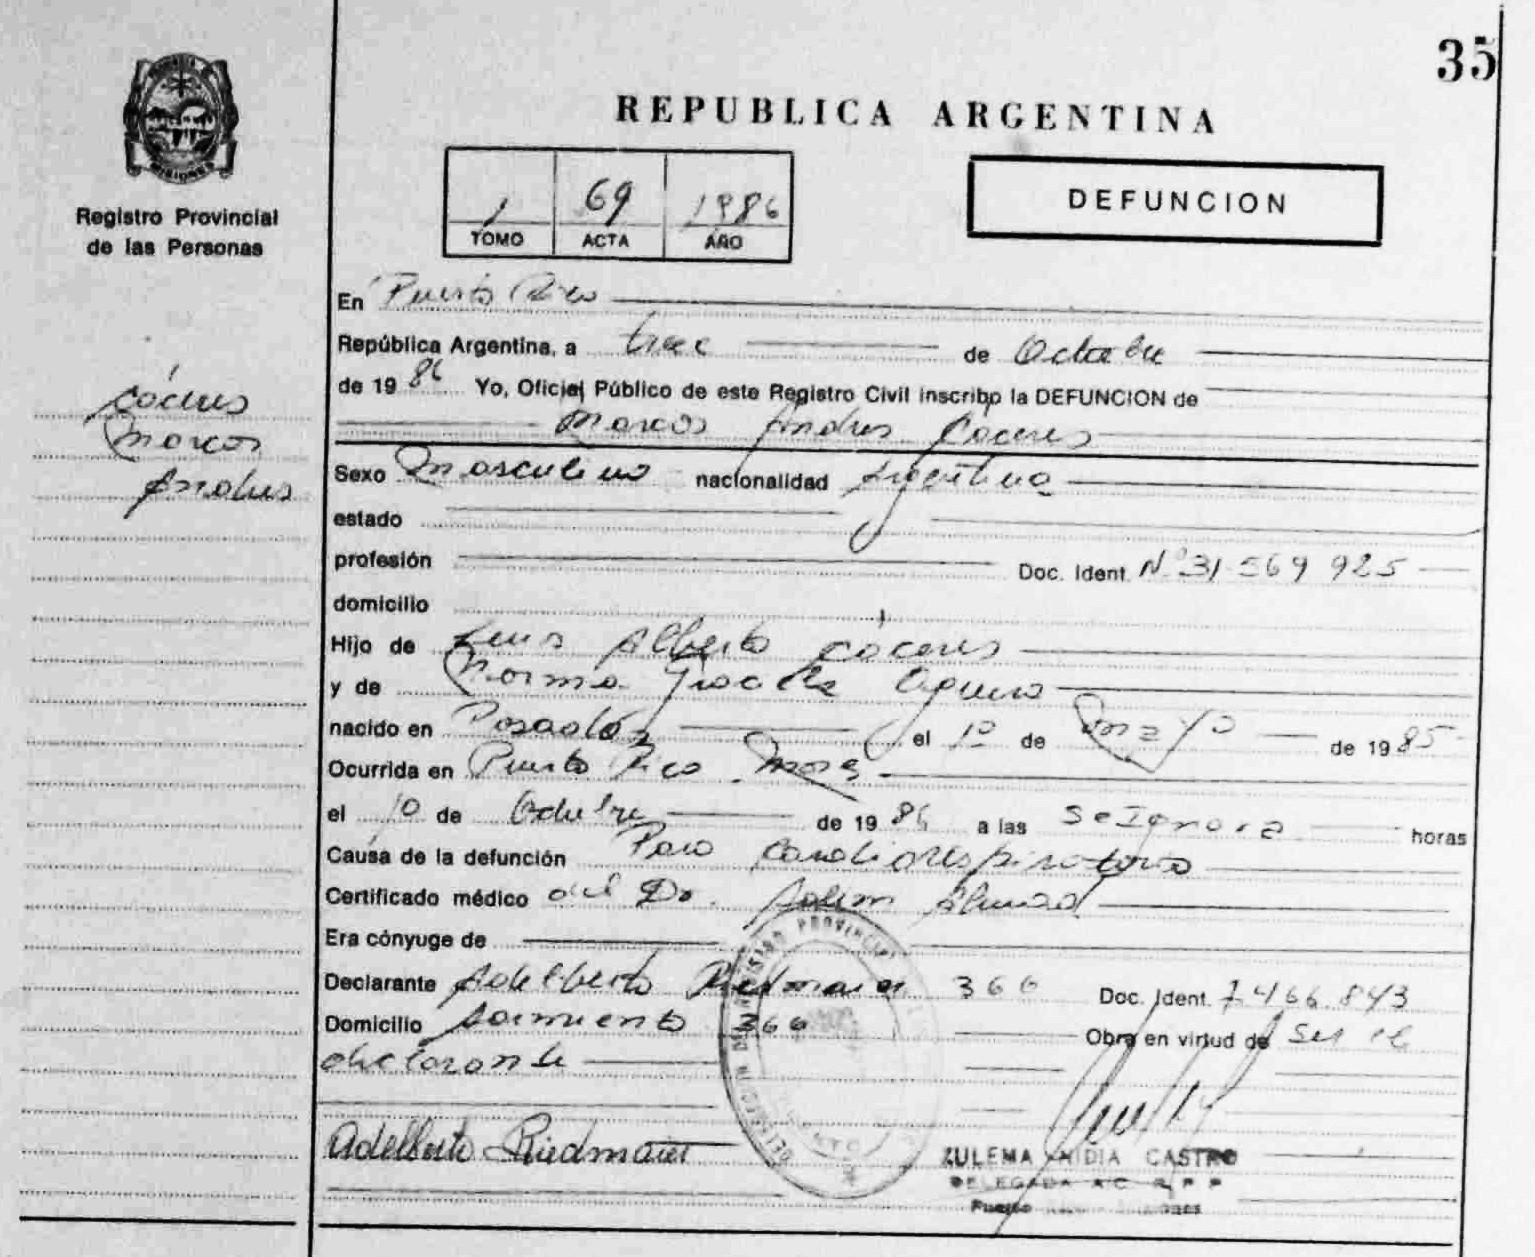 35
REPUBLICA ARGENTINA
MISIONES
Registro Provincial
de las Personas
1 69 1986
TOMO ACTA AÑO
DEFUNCION
En Puerto Rico
República Argentina, a trece de Octubre
de 1986 Yo, Oficial Público de este Registro Civil inscribo la DEFUNCION de
Marcos Andres Cáceres
Cáceres
Marcos
Andres
Sexo Masculino nacionalidad Argentina
estado
profesión Doc. Ident. Nº 31.569.925
domicilio
Hijo de Luis Alberto Cáceres
y de Norma Graciela Aguero
nacido en Posadas el 1º de Mayo de 1985
Ocurrida en Puerto Rico Mnes
el 10 de Octubre de 1986 a las Se Ignora horas
Causa de la defunción Paro Cardiorespiratorio
Certificado médico del Dr.
Era cónyuge de
Declarante Adelberto Riedmaier 366 Doc. Ident. 7.466.843
Domicilio Sarmiento 366 Obra en virtud de Ser el
declarante
Adelberto Riedmaier
ZULEMA NIDIA CASTRO
DELEGADA
Puerto